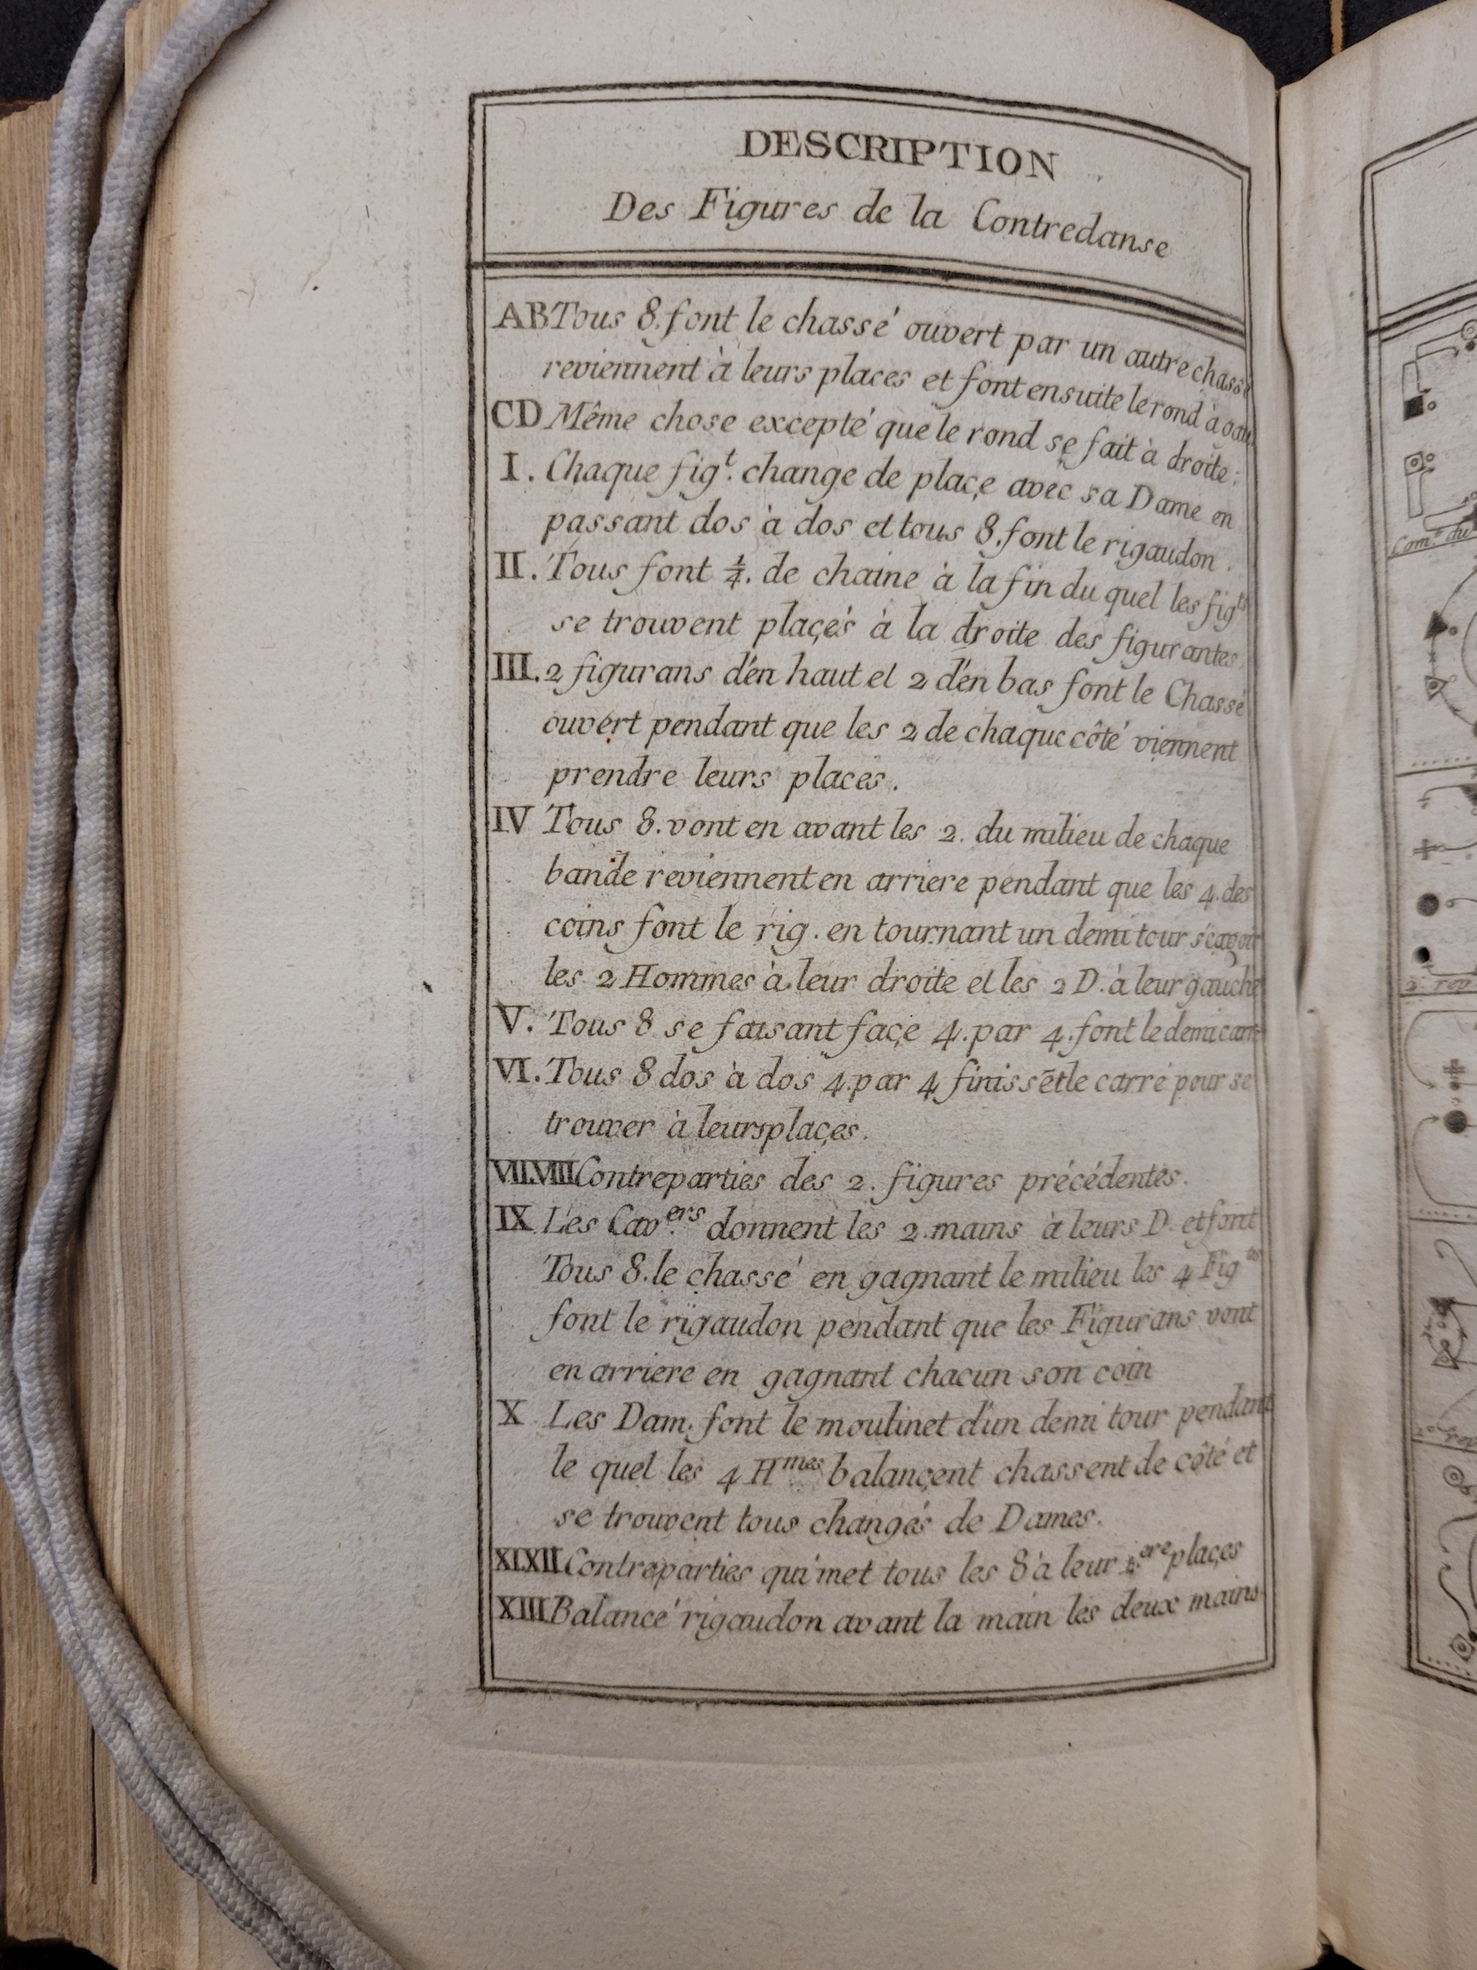 DESCRIPTION
Des Figures de la Contredanse
AB Tous 8. font le chassé ouvert par un autre chassé
reviennent à leurs places et font ensuite le rond à gau
CD Même chose excepté que le rond se fait à droite:
I. Chaque fig.t change de plaçe avec sa Dame en
passant dos à dos et tous 8. font le rigaudon.
II. Tous font 1/4. de chaine à la fin du quel les fig.ts
se trouvent plaçés à la droite des figurantes
III. 2 figurans d'én haut et 2 d'én bas font le Chassé
ouvert pendant que les 2 de chaque côté viennent
prendre leurs places.
IV Tous 8. vont en avant les 2. du milieu de chaque
bande reviennent en arriere pendant que les 4. des
coins font le rig. en tournant un demi tour sçavoir
les 2 Hommes à leur droite et les 2 D. à leur gauche
V. Tous 8 se faisant façe 4. par 4. font le demi carré
VI. Tous 8 dos à dos 4. par 4 finissēt le carré pour se
trouver à leurs plaçes.
VII. VIII Contreparties des 2. figures précédentes.
IX Les Cav.ers donnent les 2. mains à leurs D. et font
Tous 8. le chassé en gagnant le milieu les 4 Fig.tes
font le rigaudon pendant que les Figurans vont
en arriere en gagnant chacun son coin
X Les Dam. font le moulinet d'un demi tour pendant
le quel les 4 H.mes balançent chassent de côté et
se trouvent tous changés de Dames.
XI XII Contreparties qui met tous les 8 à leur 1.ere plaçes
XIII Balancé rigaudon avant la main les deux mains